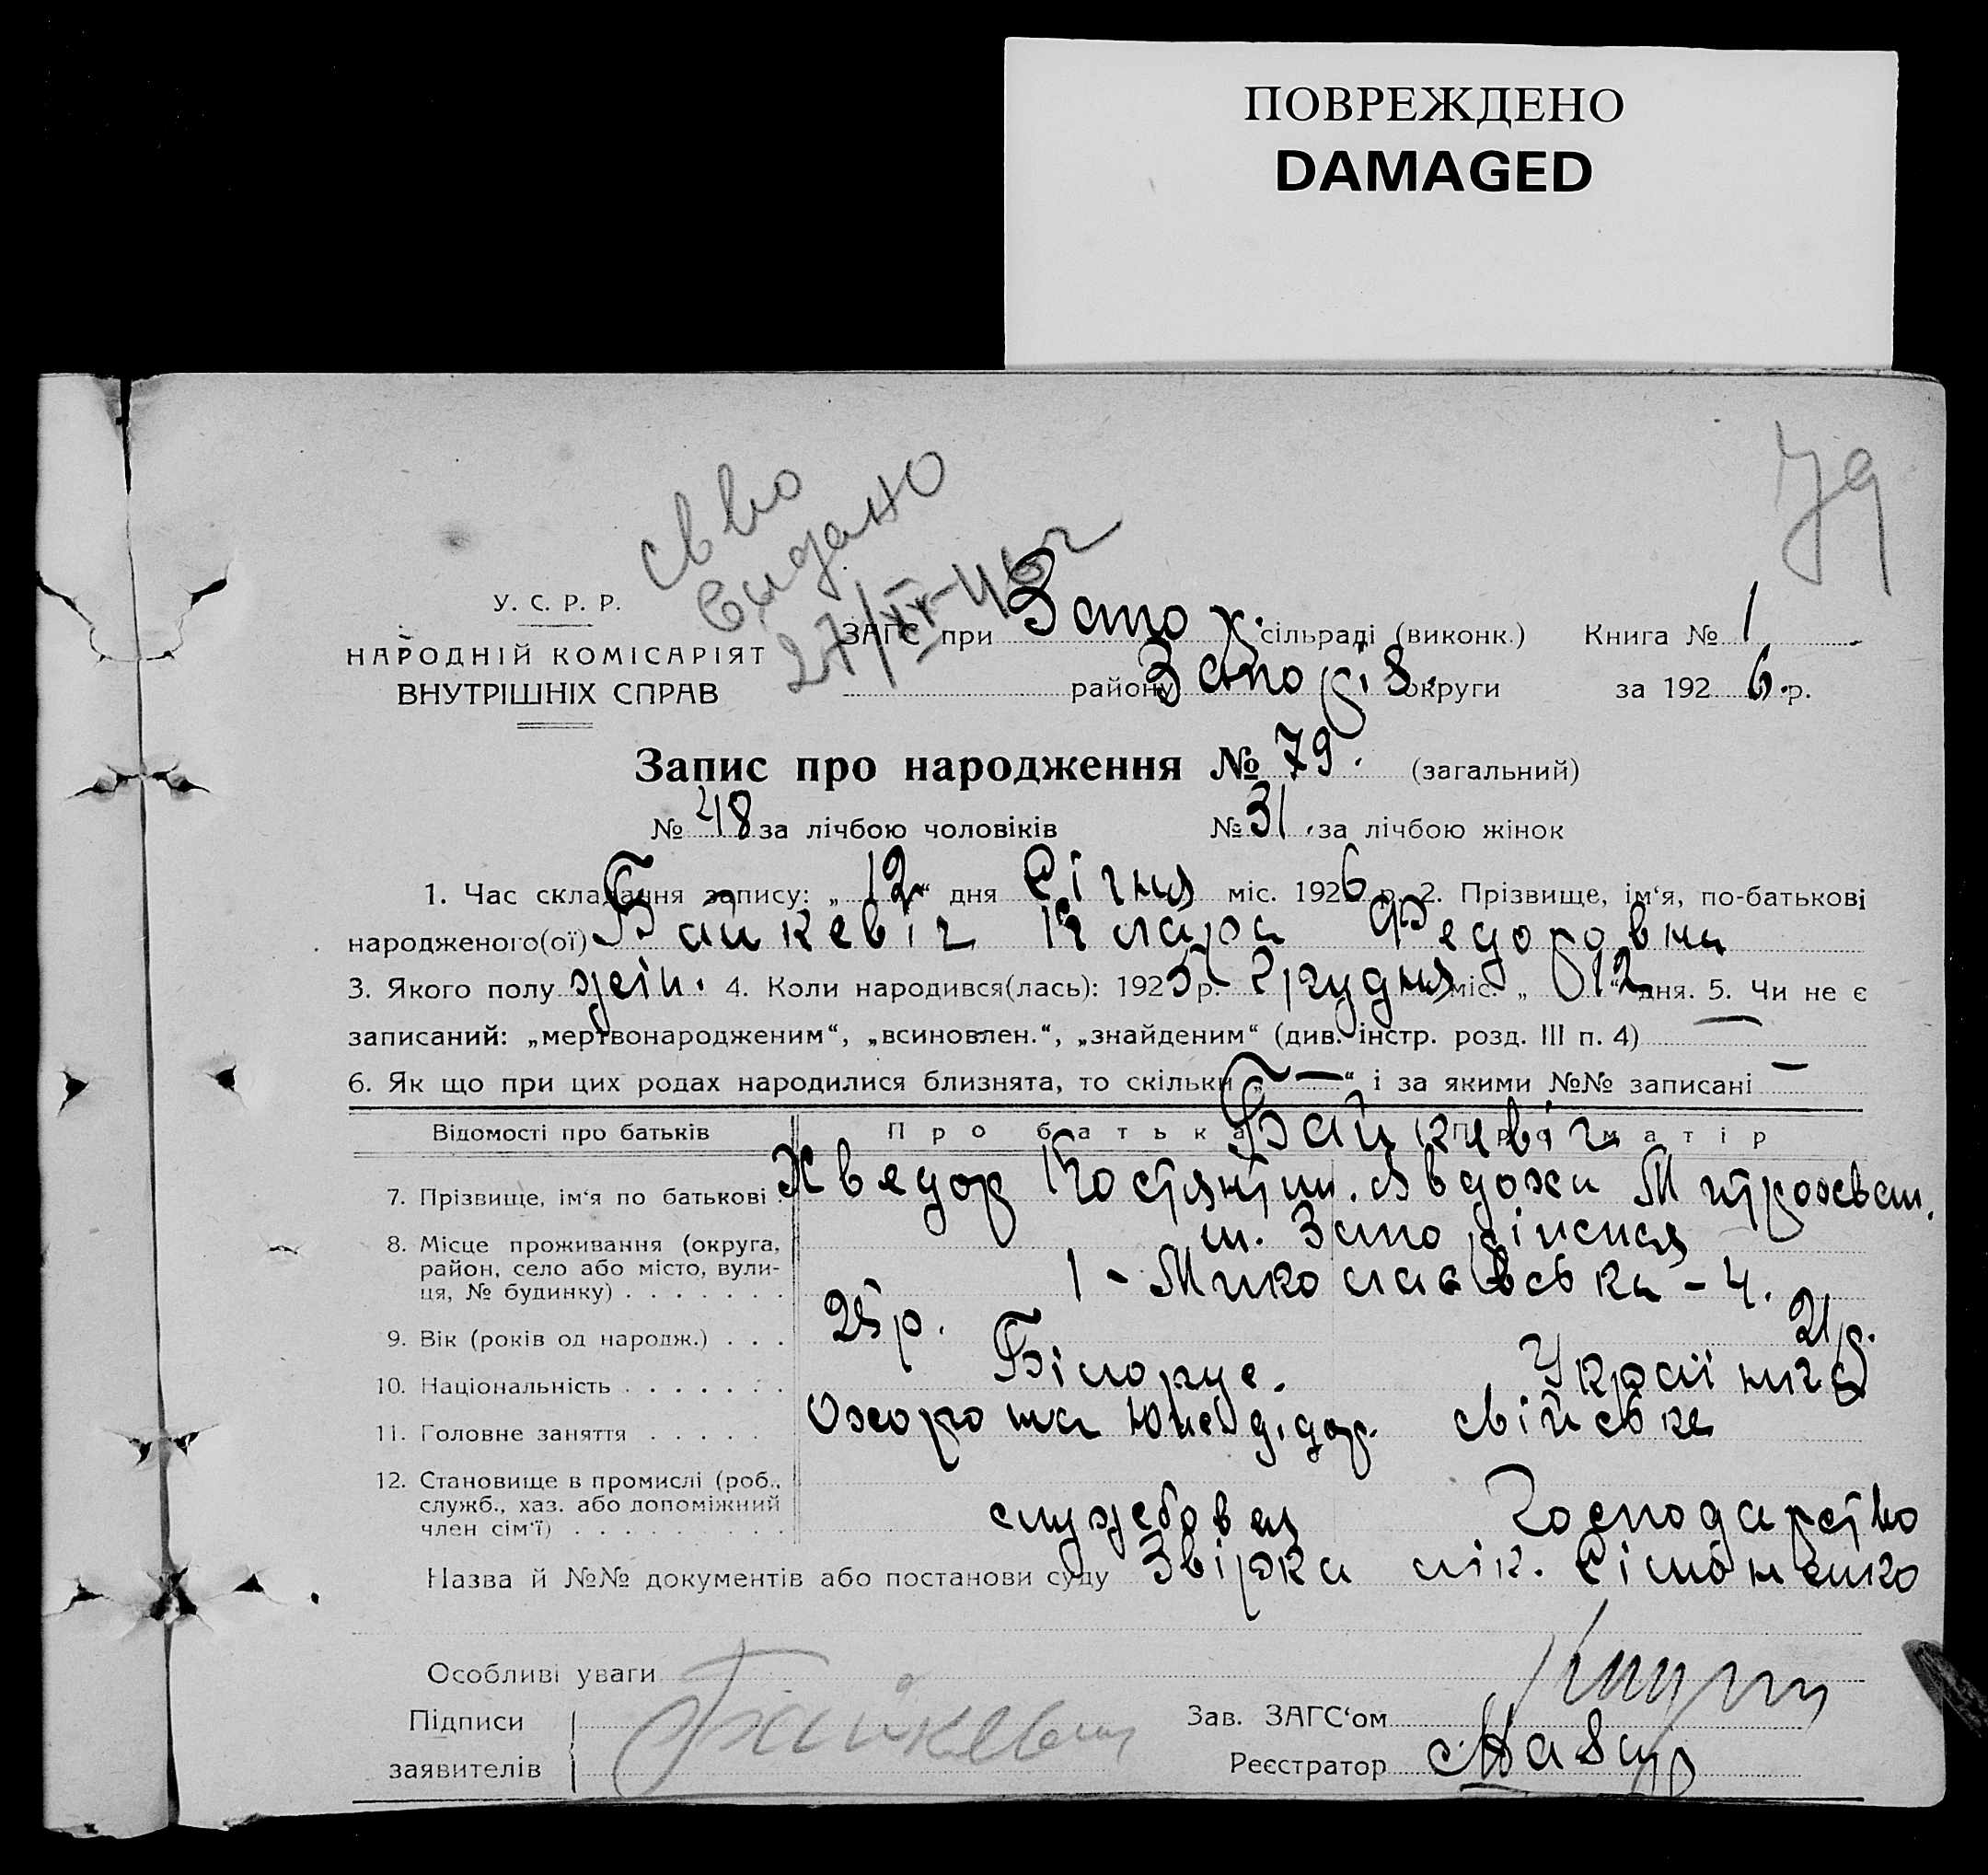 ПОВРЕЖДЕНО
DAMAGED
79
св во
видано
27/XII-46 г
У. С. Р. Р.
НАРОДНІЙ КОМІСАРІЯТ
ВНУТРІШНІХ СПРАВ
ЗАГС при Запор. сільраді (виконк.) Книга № 1
району Запоріз. округи за 1926. р.
Запис про народження № 79. (загальний)
№ 48 за лічбою чоловіків № 31. за лічбою жінок
1. Час складання запису: „12“ дня Січня міс. 1926 р. 2. Прізвище, ім‘я, по-батькові
народженого(ої) Байкевіч Клара Федоровна
3. Якого полу жін. 4. Коли народився(лась): 1925 р. Грудня міс. „12“ дня. 5. Чи не є
записаний: „мертвонародженим“, „всиновлен.“, „знайденим“ (див. інстр. розд. III п. 4) —
6. Як що при цих родах народилися близнята, то скільки „—“ і за якими №№ записані —
Відомості про батьків Про батька Про матір
Байкевіч
7. Прізвище, ім‘я по батькові Хведор Костянтин. Явдоха Митрохван.
8. Місце проживання (округа, район, село або місто, вулиця, № будинку) м. Запоріжжя
1 - Миколаівська - 4.
9. Вік (років од народж.) 25 р. 21 р.
10. Національність Білорус. Українка
11. Головне заняття Охорона свійське
12. Становище в промислі (роб., служб., хаз. або допоміжний член сім‘ї) службовця Господарство
Назва й №№ документів або постанови суду лік. Сімоненко
Особливі уваги
Підписи заявителів Байкевич
Зав. ЗАГС‘ом
Реєстратор